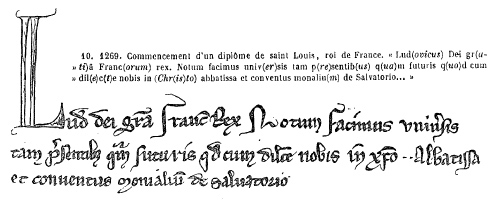 10. 1269. Commencement d'un diplôme de saint Louis, roi de France. « Lud(ovicus) Dei gr(a-
» ti)ā Franc(orum) rex. Notum facimus univ(er)sis tam p(re)sentib(us) q(ua)m futuris q(uo)d cum
» dil(e)c(t)e nobis in (Chr(is)to) abbatissa et conventus monaliu(m) de Salvatorio... »
Lud dei gra Franc Rex Notum facimus universis
tam psentib qm futuris qd cum dilce nobis in xpo .. Abbatissa
et conventus monaliu de Salvatorio